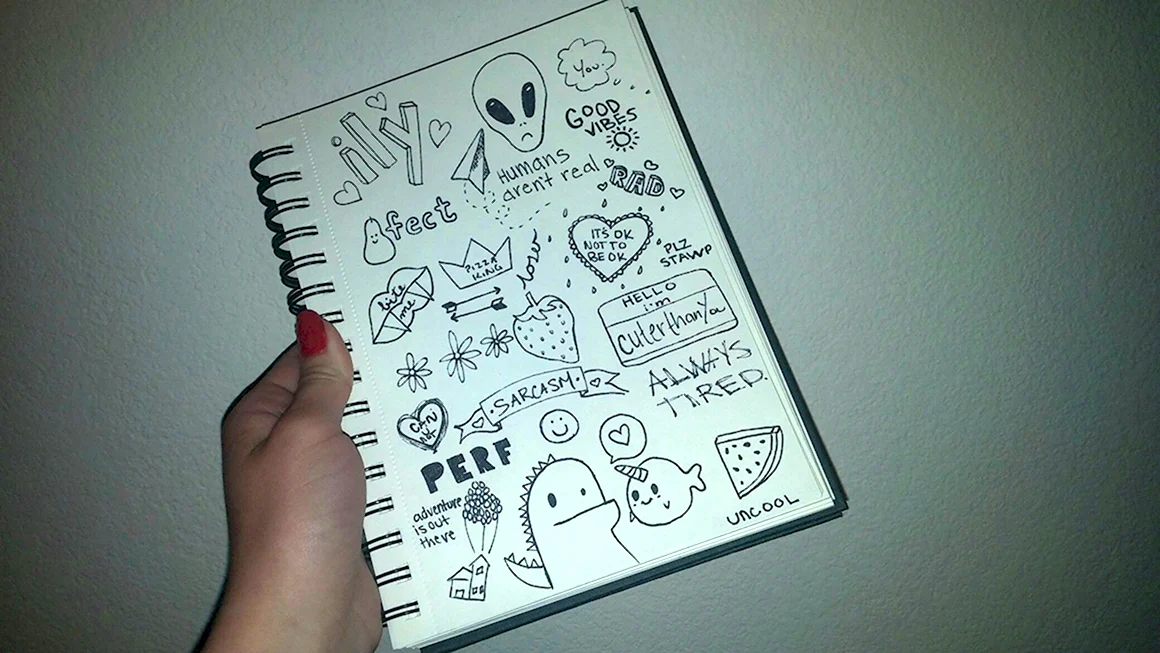 ily
You.
GOOD
VIBES
Humans
aren't real
RAD
fect
IT'S OK
NOT TO
BE OK
PLZ
STAWP
PIZZA
KING
loser
bite
me
HELLO
i'm
cuterthanYou
ALWAYS
TIRED.
SARCASM
CAN
NOT
PERF
adventure
is out
there
UNCOOL